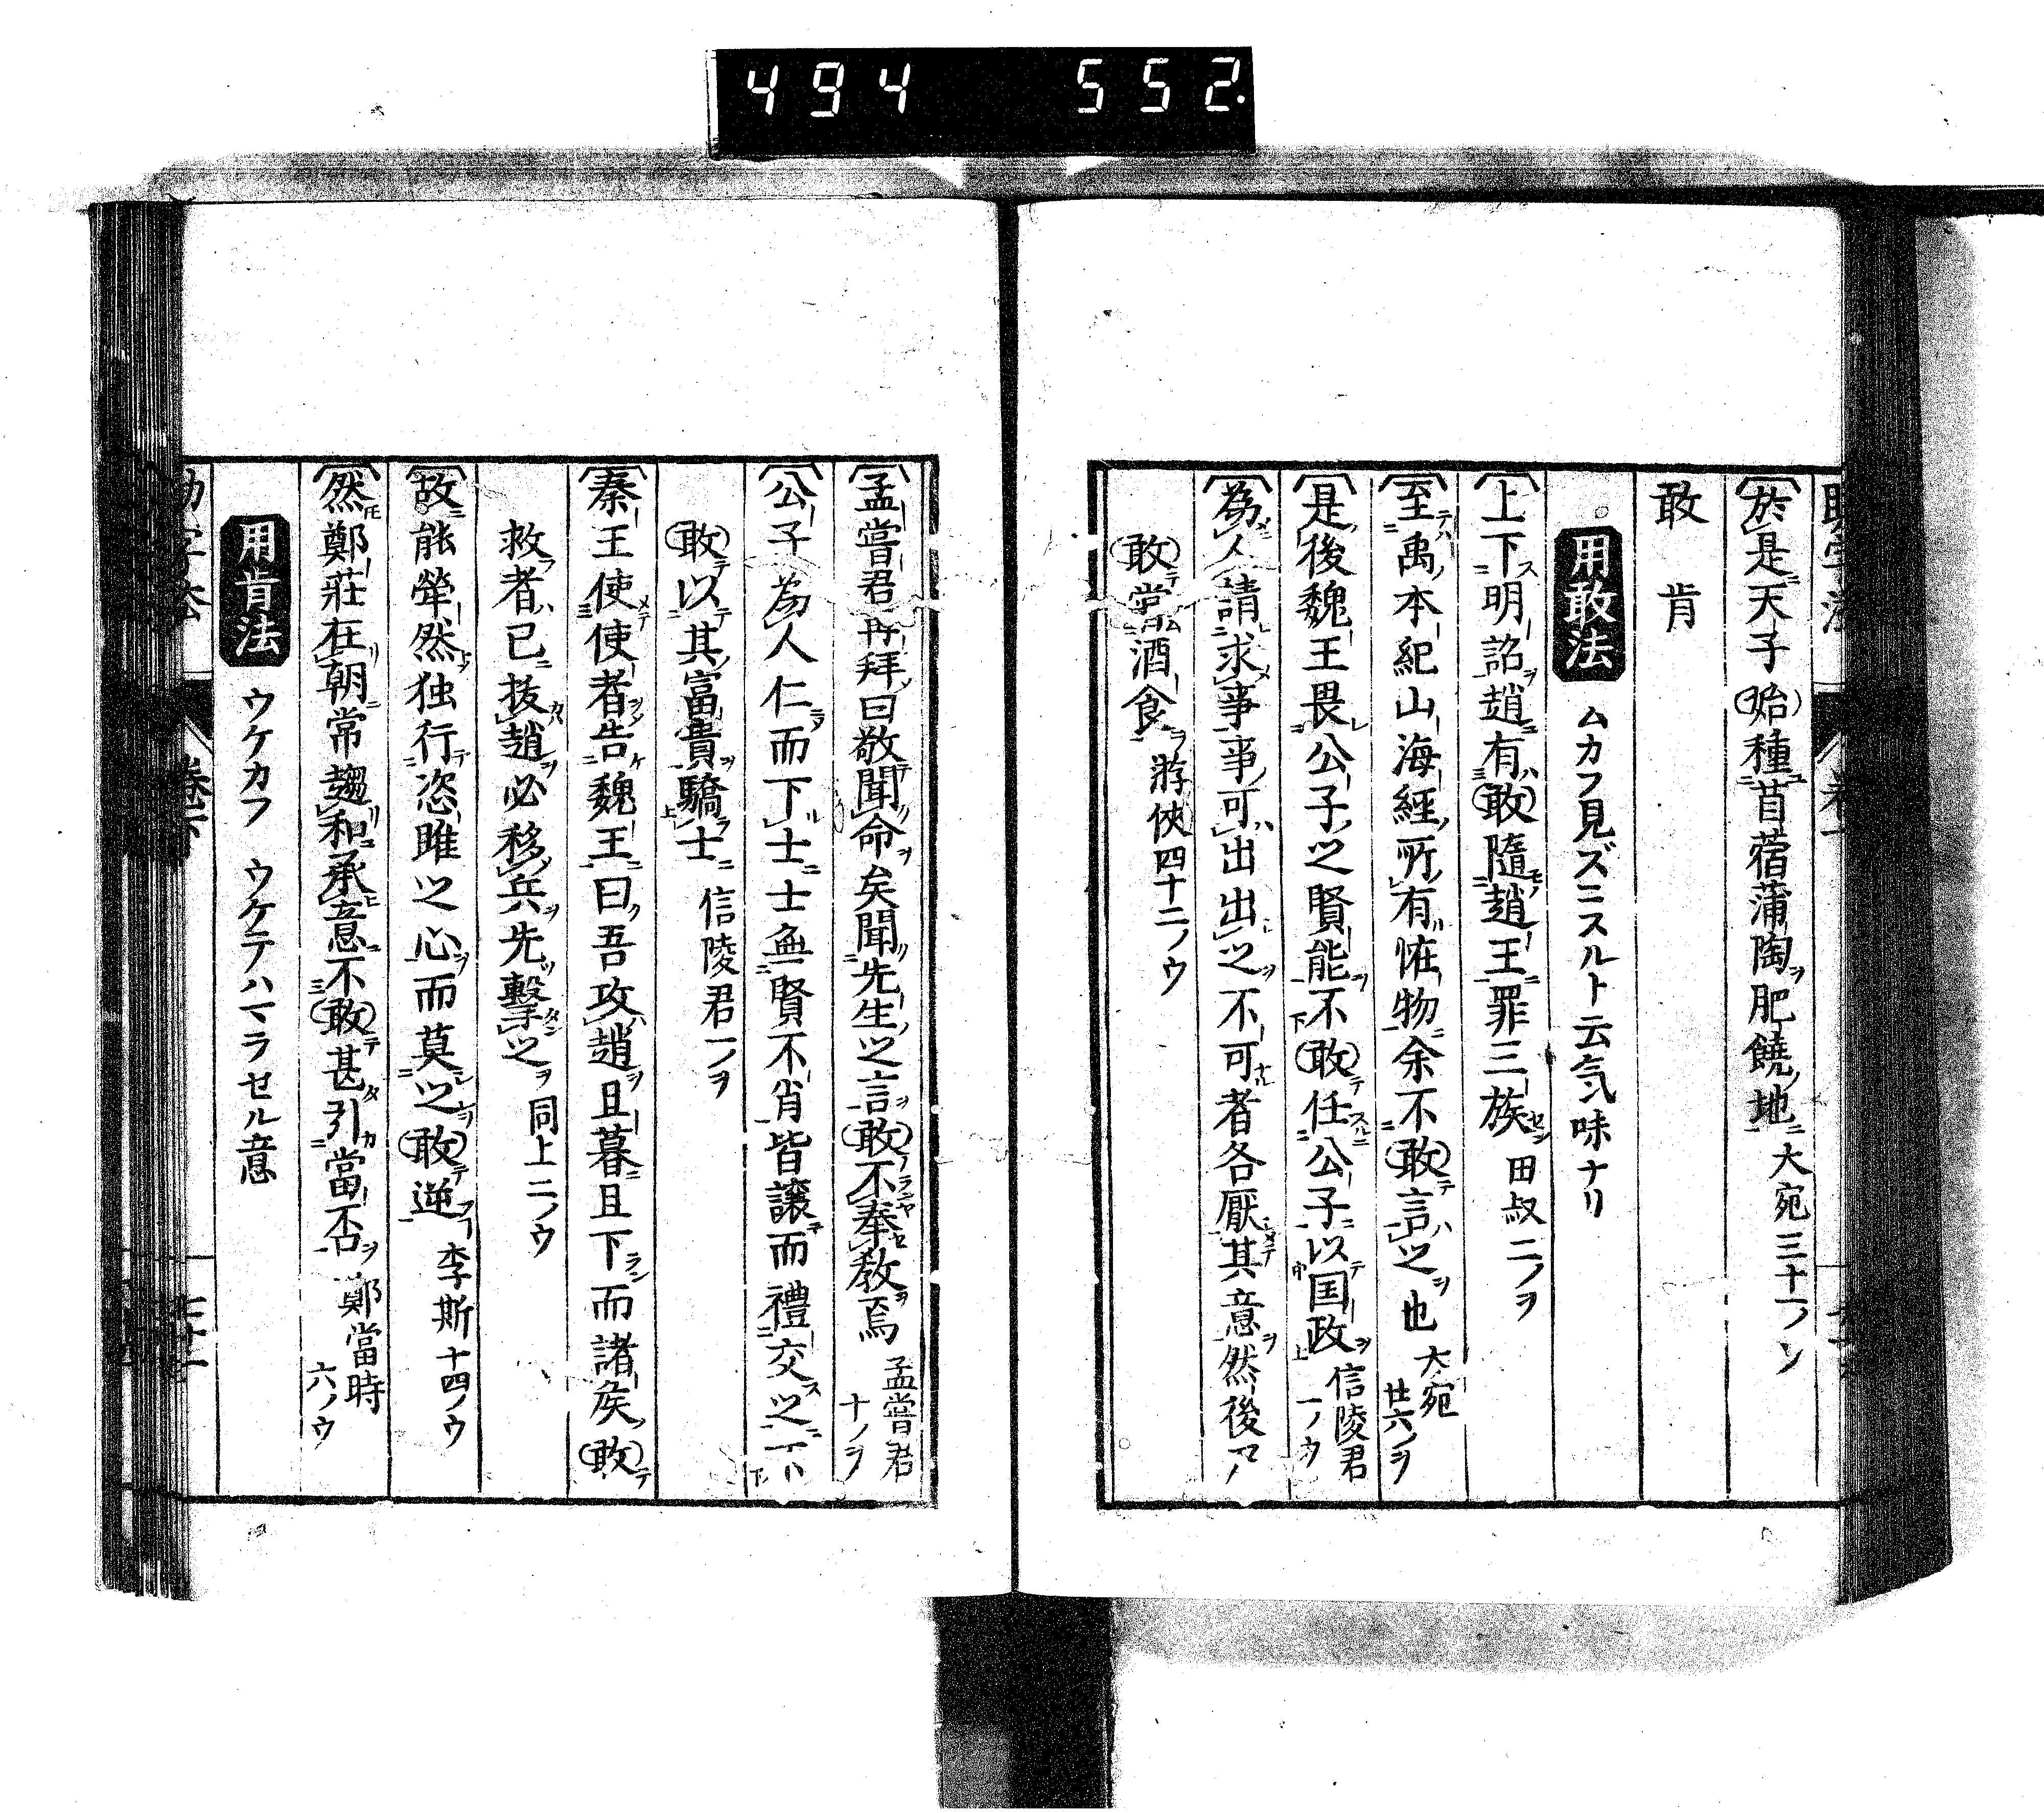 494 552.
於是天子始種苜蓿蒲陶肥饒地 大宛三十一ノ
敢 肯
用敢法 ムカフ見ズニスルト云気味ナリ
上下明詔趙有敢隨趙王罪三族 田叔二ノヲ
至禹本紀山海經所有怪物余不敢言之也 大宛廿六ノヲ
是後魏王畏公子之賢能不敢任公子以国政 信陵君一ノウ
為人請求事事可出出之不可者各厭其意然後
敢甞酒食 游俠四十二ノウ
孟嘗君再拜曰敬聞命矣聞先生之言敢不奉教焉 孟嘗君十ノヲ
公子為人仁而下士士無賢不肖皆讓而禮交之不
敢以其富貴驕士 信陵君一ノヲ
秦王使使者告魏王曰吾攻趙且暮且下而諸矦敢
救者已拔趙必移兵先擊之 同上二ノウ
故能犖然独行恣睢之心而莫之敢逆 李斯十四ノウ
然鄭莊在朝常趨和承意不敢甚引當否 鄭當時六ノウ
用肯法 ウケカフ ウケテハマラセル意